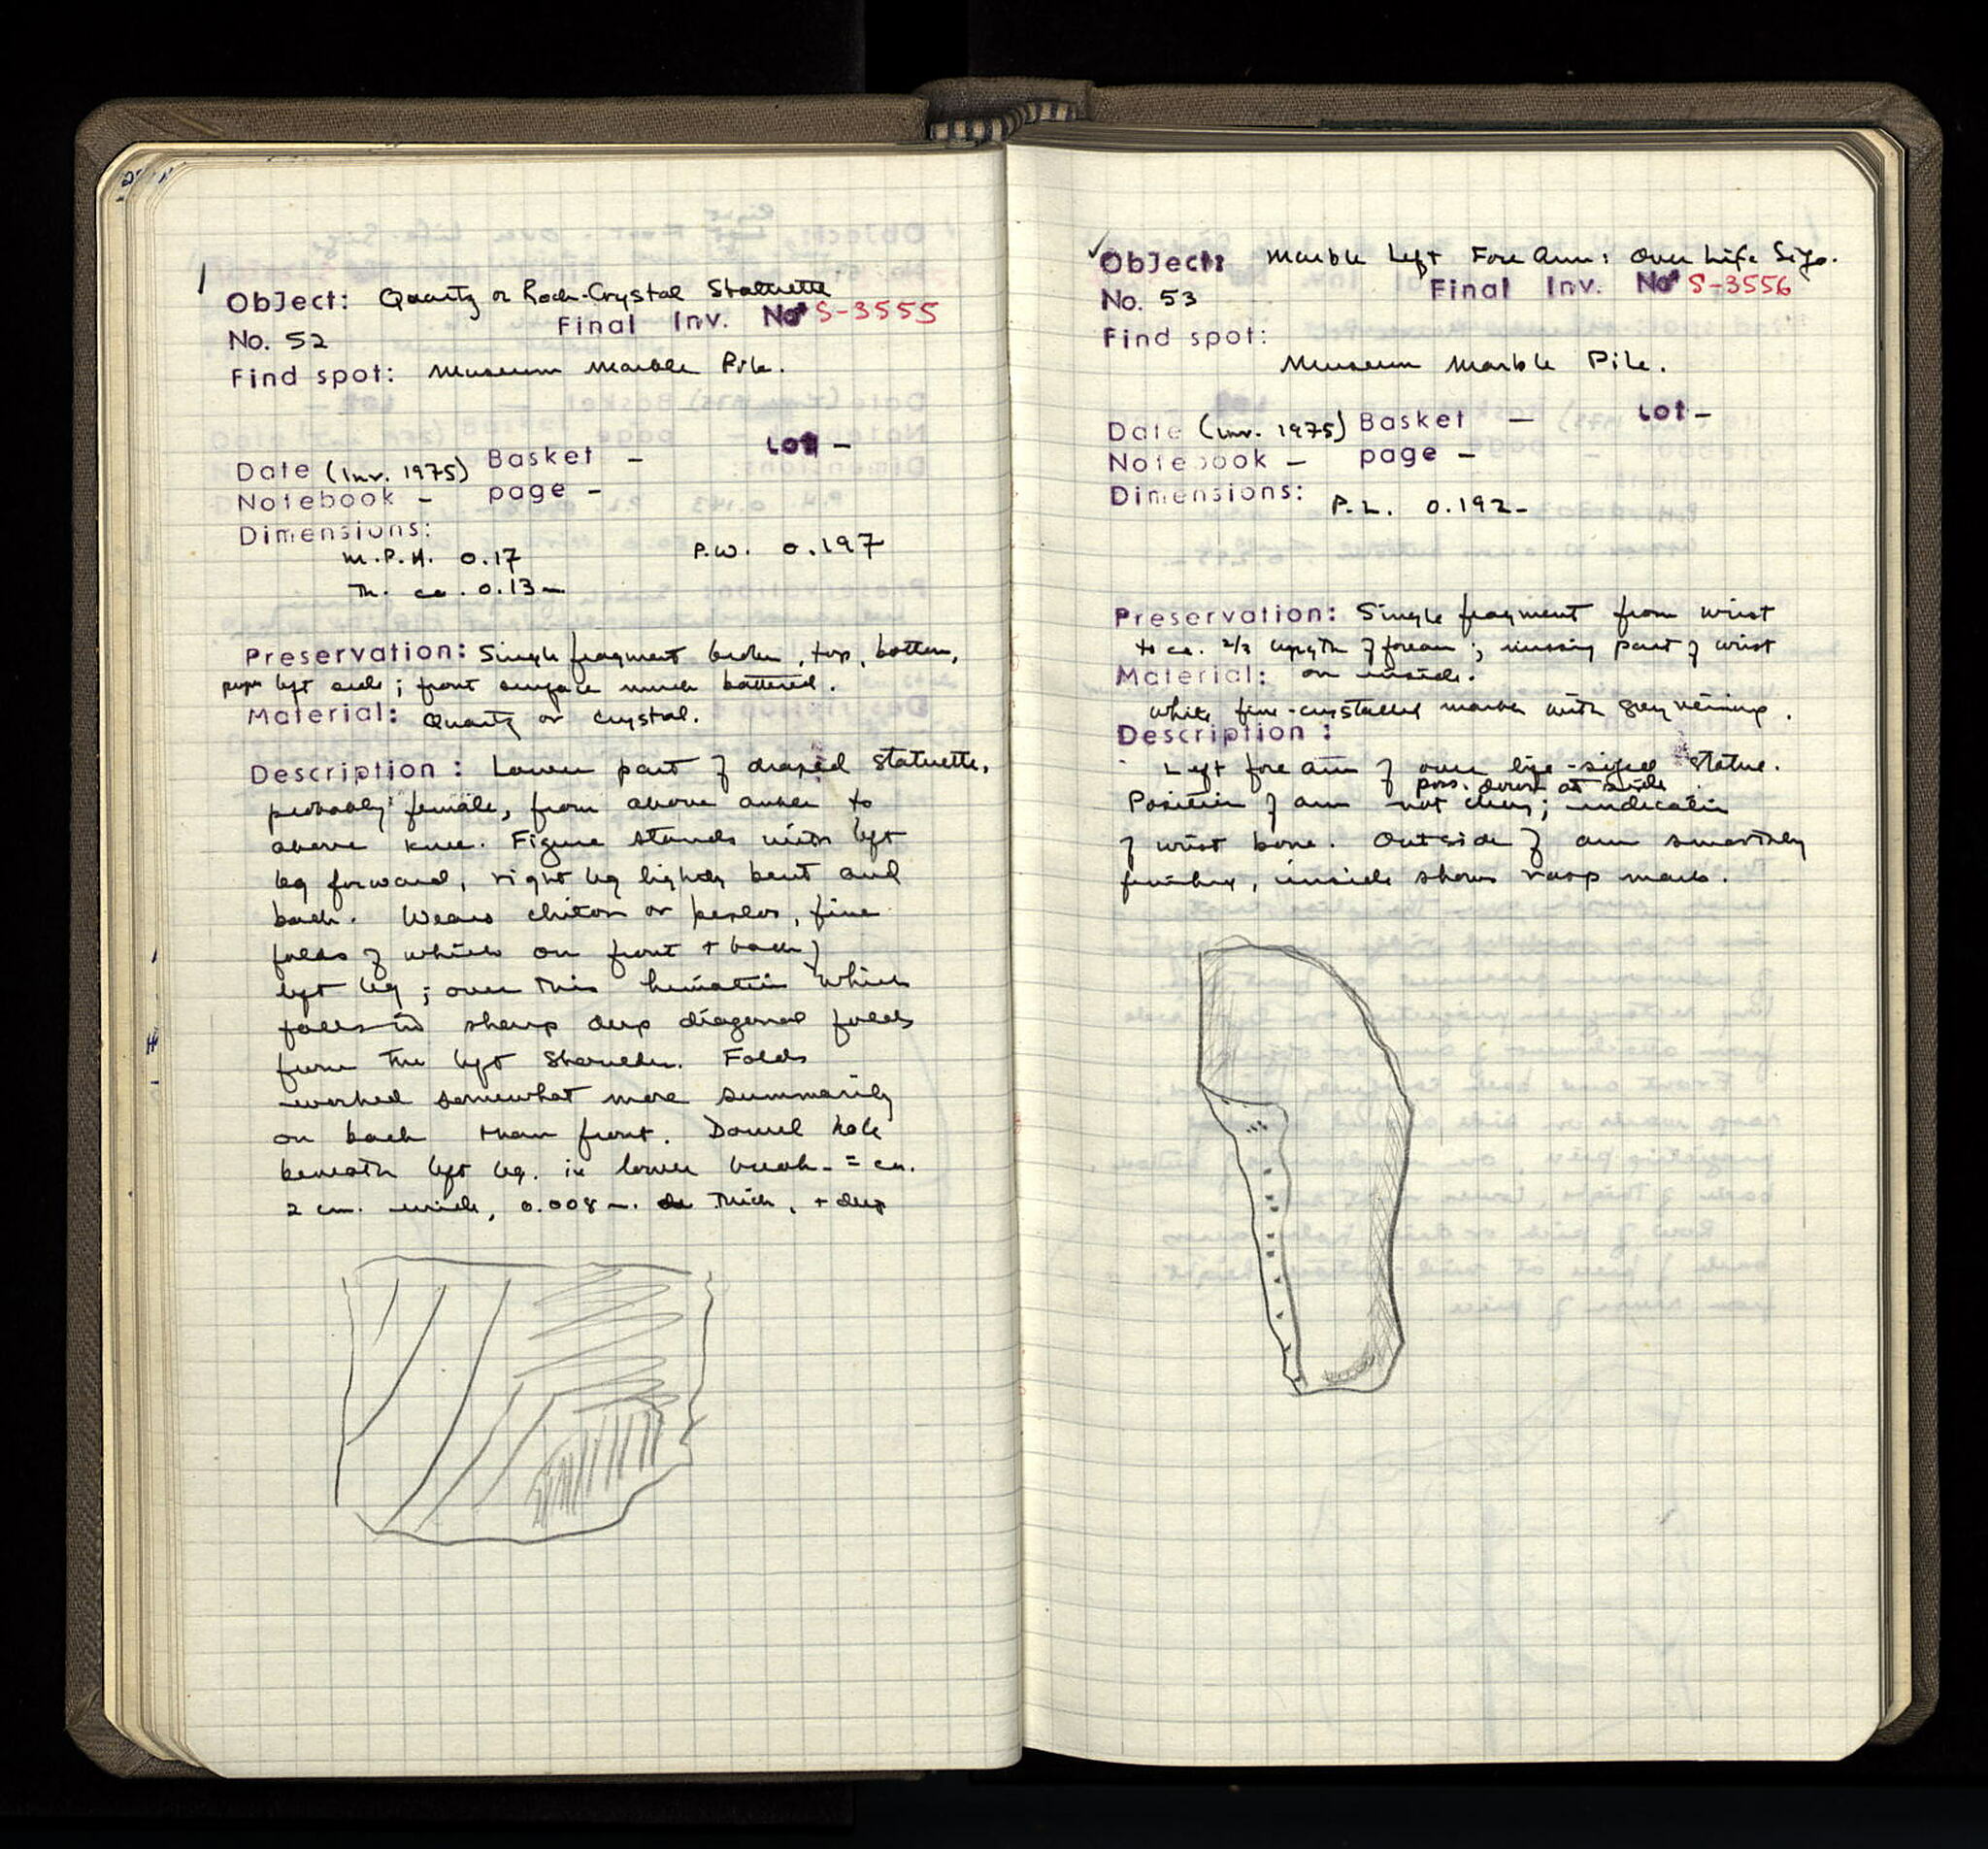 Object: Quartz or Rock-Crystal Statuette
Final Inv. No S-3555
No. 52
Find spot: Museum Marble Pile.
Lot -
Date (Inv. 1975) Basket -
Notebook - page -
Dimensions:
M.P.H. 0.17 P.W. 0.197
Th. ca. 0.13m
Preservation: Single fragment broken, top, bottom,
left side; front surface much battered.
Material: Quartz or crystal.
Description: Lower part of draped statuette,
probably female, from above ankle to
above knee. Figure stands with left
leg forward, right leg lightly bent and
back. Wears chiton or peplos, fine
folds of which on front + back of
left leg; over this himation which
falls in sharp deep diagonal folds
from the left shoulder. Folds
worked somewhat more summarily
on back than front. Dowel hole
beneath left leg. in lower break = ca.
2 cm. wide, 0.008 m. thick, + deep
Object: Marble Left Fore Arm: Over Life Size.
Final Inv. No S-3556
No. 53
Find spot:
Museum Marble Pile.
Lot -
Date (Inv. 1975) Basket -
Notebook - page -
Dimensions: P.L. 0.192m
Preservation: Single fragment from wrist
to ca. 2/3 length of forearm; missing part of wrist
Material: on inside.
White fine-crystalled marble with grey veining.
Description:
Left fore arm of over life-sized statue.
poss. down at side
Position of arm not clear; indication
of wrist bone. Outside of arm smoothly
finished, inside shows rasp marks.